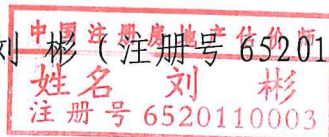 中国注册房地产估价师
刘 彬（注册号 65201
姓名 刘 彬
注册号 6520110003